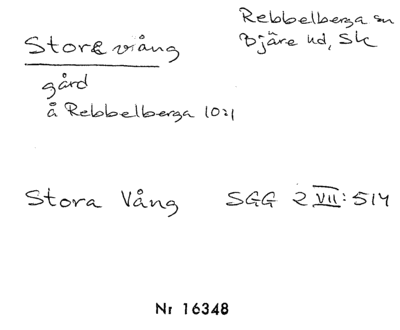 Rebbelberga sn
Bjäre hd, Sk
Stora vång
gård
å Rebbelberga 10:1
Stora Vång SGG 2 VII: 514
Nr 16348